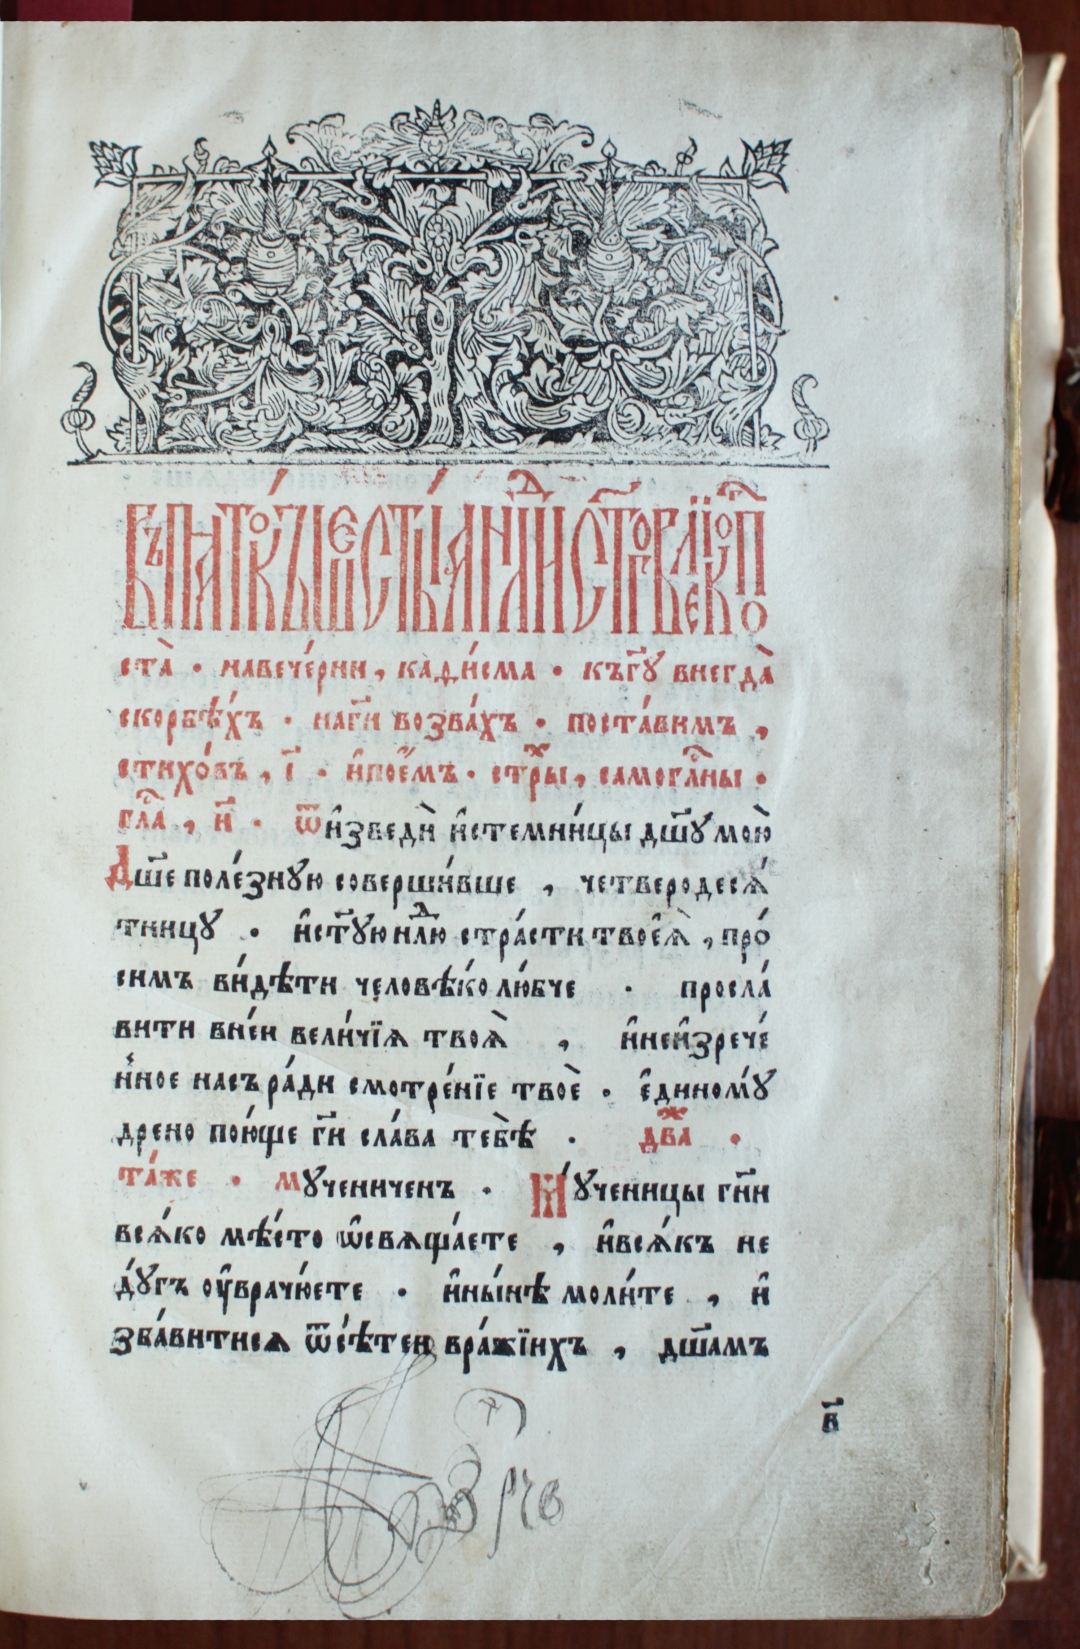 Въ пѧто́къ шесты́ѧ нⷣли ст҃го великⷢ҇ пос
ста̀ · навече́рни, кади́сма · къ гд҃ꙋ внегда̀
скорбѣ́хъ · на гд҃и возва́хъ · поста́вимъ ,
стихо́въ , і҃ · и҆пое́мъ · стрⷯы, самогла́сны ·
гла̀ , и҃ · ѿи҆зведѝ и҆стемни́цы дш҃ꙋ мою̀
Дш҃еполе́знꙋю соверши́вше , четверодесѧ́
тницꙋ · и҆ст҃ꙋю нⷣлю стра́сти твоеѧ̀ , про́
симъ ви́дѣти человѣ́колю́бче · просла́
вити вне́и вели́чїѧ твоѧ̀ , и҆неи҆зрече́
нное насъ ра́ди смотре́нїе твоѐ · є҆диномꙋ́
дрено пою́ще гд҃и сла́ва тебѣ̀ · двⷤа ·
та́же · мꙋ́ченичен · Мꙋ́ченицы гд҃ни
всѧ́ко мѣ́сто ѡ҆свѧща́ете , и҆всѧ́къ не
дꙋ́гъ оу҆врачю́ете · и҆ны́нѣ моли́те , и҆
зба́витисѧ ѿсѣ́теи вра́жїихъ , дш҃амъ
в҃